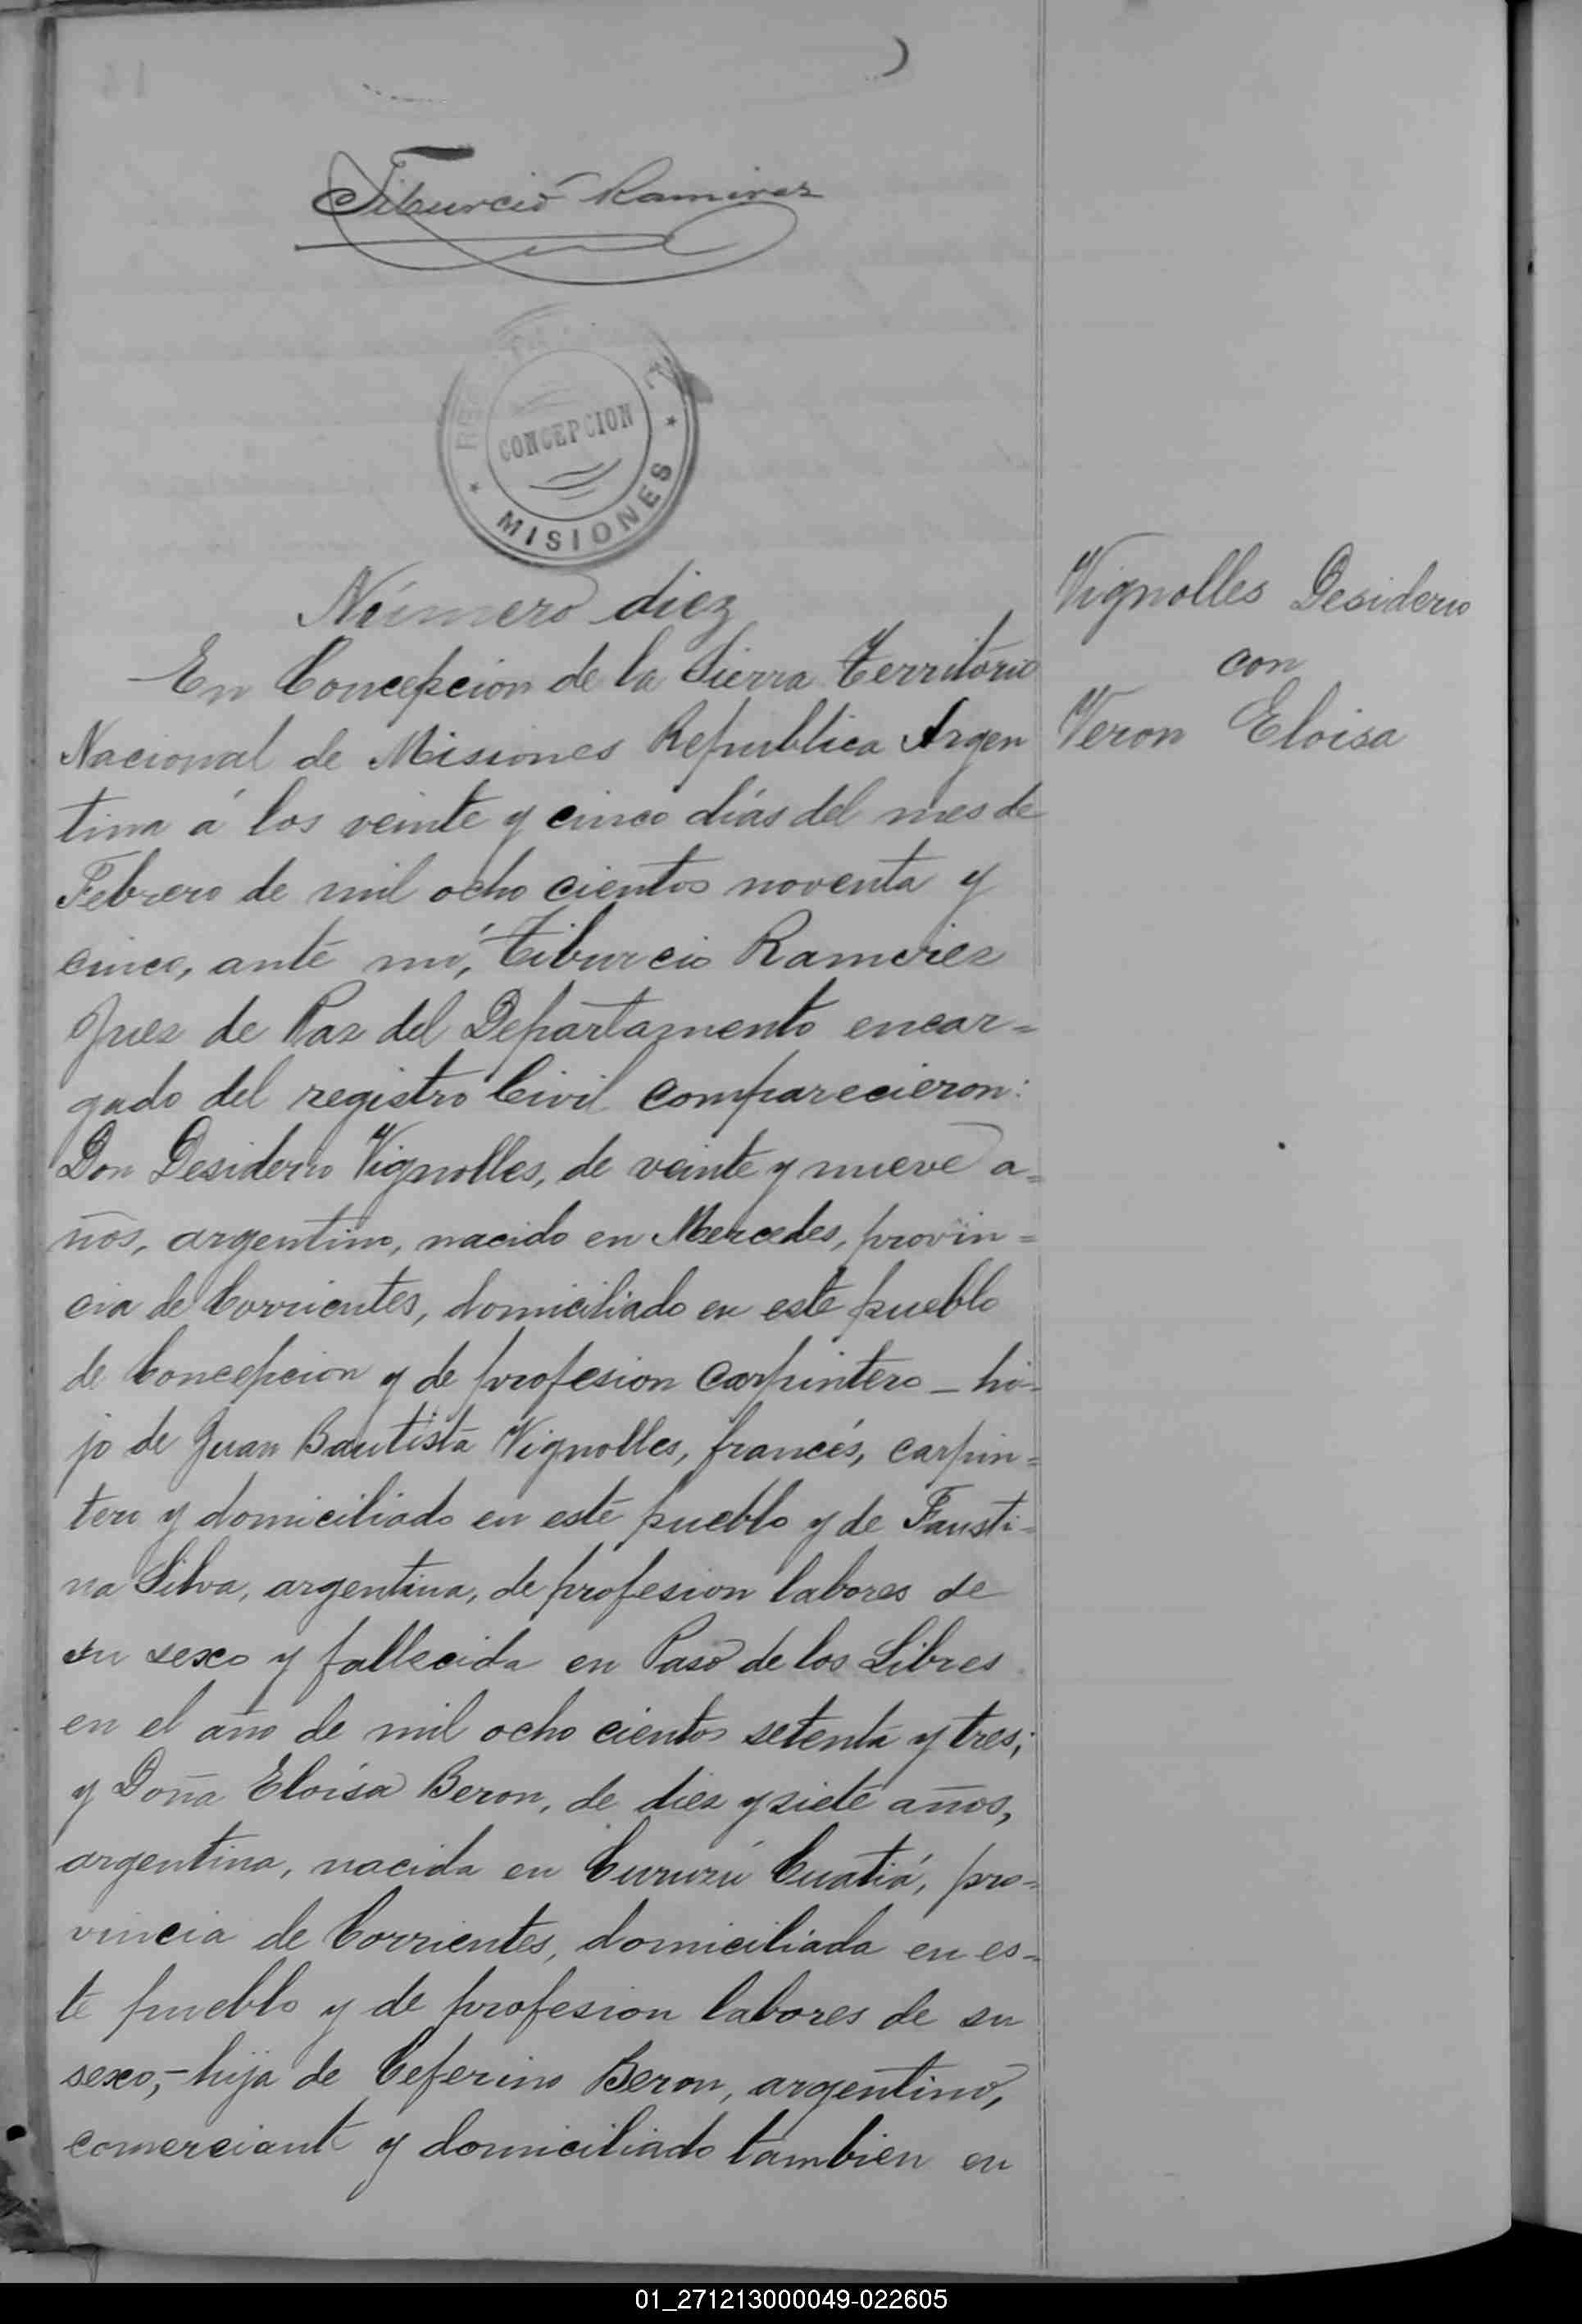 Tiburcio Ramirez
CONCEPCION
MISIONES
Número diez
En Concepcion de la Sierra Territorio
Nacional de Misiones Republica Argen
tina á los veinte y cinco días del mes de
Febrero de mil ocho cientos noventa y
cinco, ante mí, Tiburcio Ramirez
Juez de Paz del Departamento encar=
gado del registro Civil comparecieron:
Don Desiderio Vignolles, de veinte y nueve a=
ños, argentino, nacido en Mercedes, provin=
cia de Corrientes, domiciliado en este pueblo
de Concepcion y de profesion carpintero _ hi=
jo de Juan Bautista Vignolles, francés, carpin=
tero y domiciliado en este pueblo y de Fausti=
na Silva, argentina, de profesion labores de
su sexo y fallecida en Paso de los Libres
en el año de mil ocho cientos setenta y tres;
y Doña Eloisa Beron, de diez y siete años,
argentina, nacida en Curuzú Cuatiá, pro=
vincia de Corrientes, domiciliada en es=
te pueblo y de profesion labores de su
sexo,- hija de Ceferino Beron, argentino,
comerciante y domiciliado tambien en
Vignolles Desiderio
con
Veron Eloisa
01_271213000049-022605